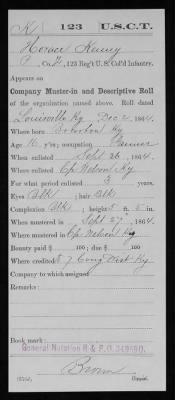 K | 123 | U.S.C.T.
Horace Kenny
P, Co. H, 123 Reg't U.S. Col'd Infantry.
Appears on
Company Muster-in and Descriptive Roll
of the organization named above. Roll dated
Louisville Ky Dec 2, 1864.
Where born Ky
Age y'rs; occupation Farmer
When enlisted Sept 26, 1864.
Where enlisted Cp Nelson Ky
For what period enlisted 3 years.
Eyes Blk; hair Blk
Complexion Blk; height 5 ft. 5 in.
When mustered in Sept 27, 1864.
Where mustered in Cp Nelson Ky
Bounty paid $ 100; due $ 100
Where credited 7 Cong Dist Ky
Company to which assigned
Remarks:
Book mark:
General Notation R & P. O.
Brown
Copyist.